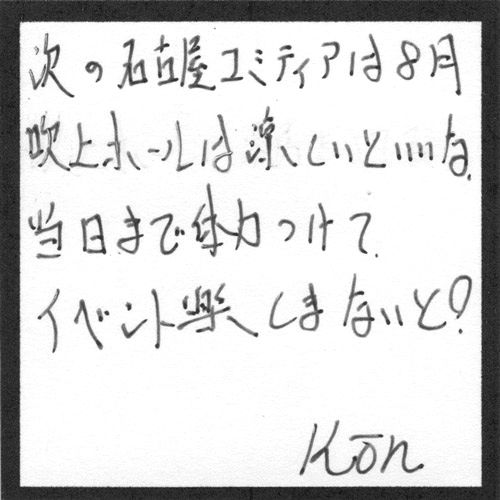 次の名古屋コミティアは8月
吹上ホールは涼しいといいな。
当日まで体力つけて
イベント楽しまないと？
Kōn